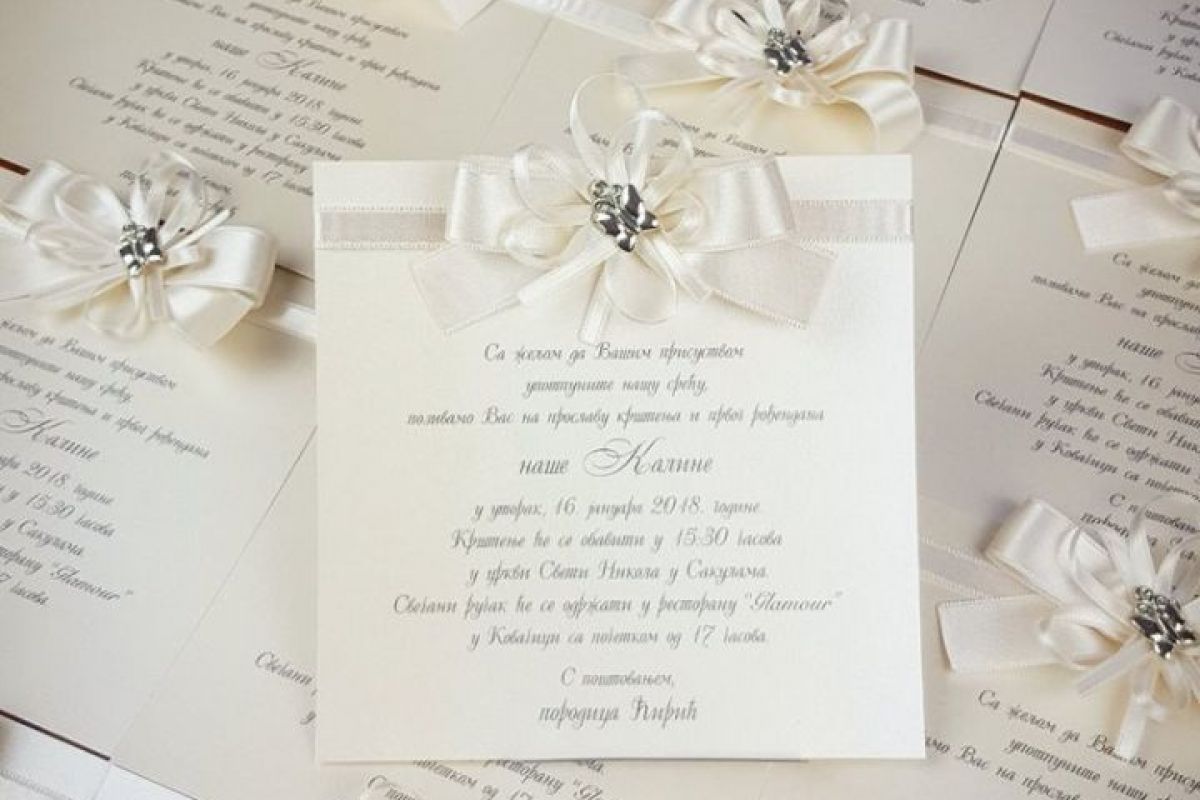 Са жељом да Вашим присуством
употпуните нашу срећу,
позивамо Вас на прославу крштења и првог рођендана
наше Калине
у уторак, 16. јануара 2018. године.
Крштење ће се обавити у 15:30 часова
у цркви Свети Никола у Сакулама.
Свечани ручак ће се одржати у ресторану "Glamour"
у Ковачици са почетком од 17 часова.
С поштовањем,
породица Ћирић